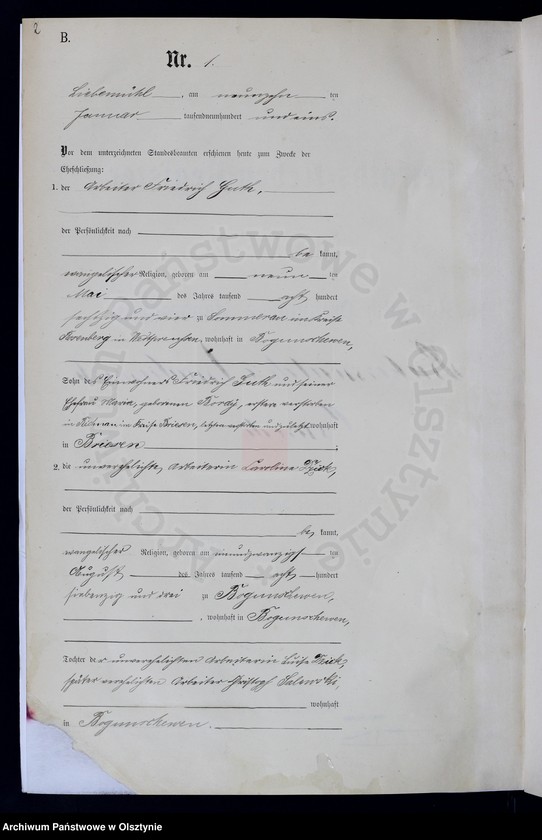 2
B.
Nr. 1.
Liebemühl, am neunzehn ten
Januar tausendneunhundert und eins.
Vor dem unterzeichneten Standesbeamten erschienen heute zum Zwecke der
Eheschließung:
1. der Arbeiter Friedrich Guth,
der Persönlichkeit nach
be kannt,
evangelischer Religion, geboren am neun ten
Mai des Jahres tausend acht hundert
sechszig und vier zu Sommerau im Kreise
Rosenberg in Westpreußen, wohnhaft in Bogunschewen,
Sohn des Friedrich Guth und seiner
Ehefrau Maria, geborenen, ersterer verstorben
in im Kreise Briesen, wohnhaft
in Briesen ;
2. die unverehelichte Arbeiterin Caroline
der Persönlichkeit nach
be kannt,
evangelischer Religion, geboren am neunundzwanzigs ten
August des Jahres tausend acht hundert
siebenzig und drei zu Bogunschewen,
, wohnhaft in Bogunschewen,
Tochter der unverehelichten Arbeiterin Luise
später verehelichten Arbeiter Christoph Salewski,
wohnhaft
in Bogunschewen.
Archiwum Państwowe w Olsztynie
Archiwum Państwowe w Olsztynie